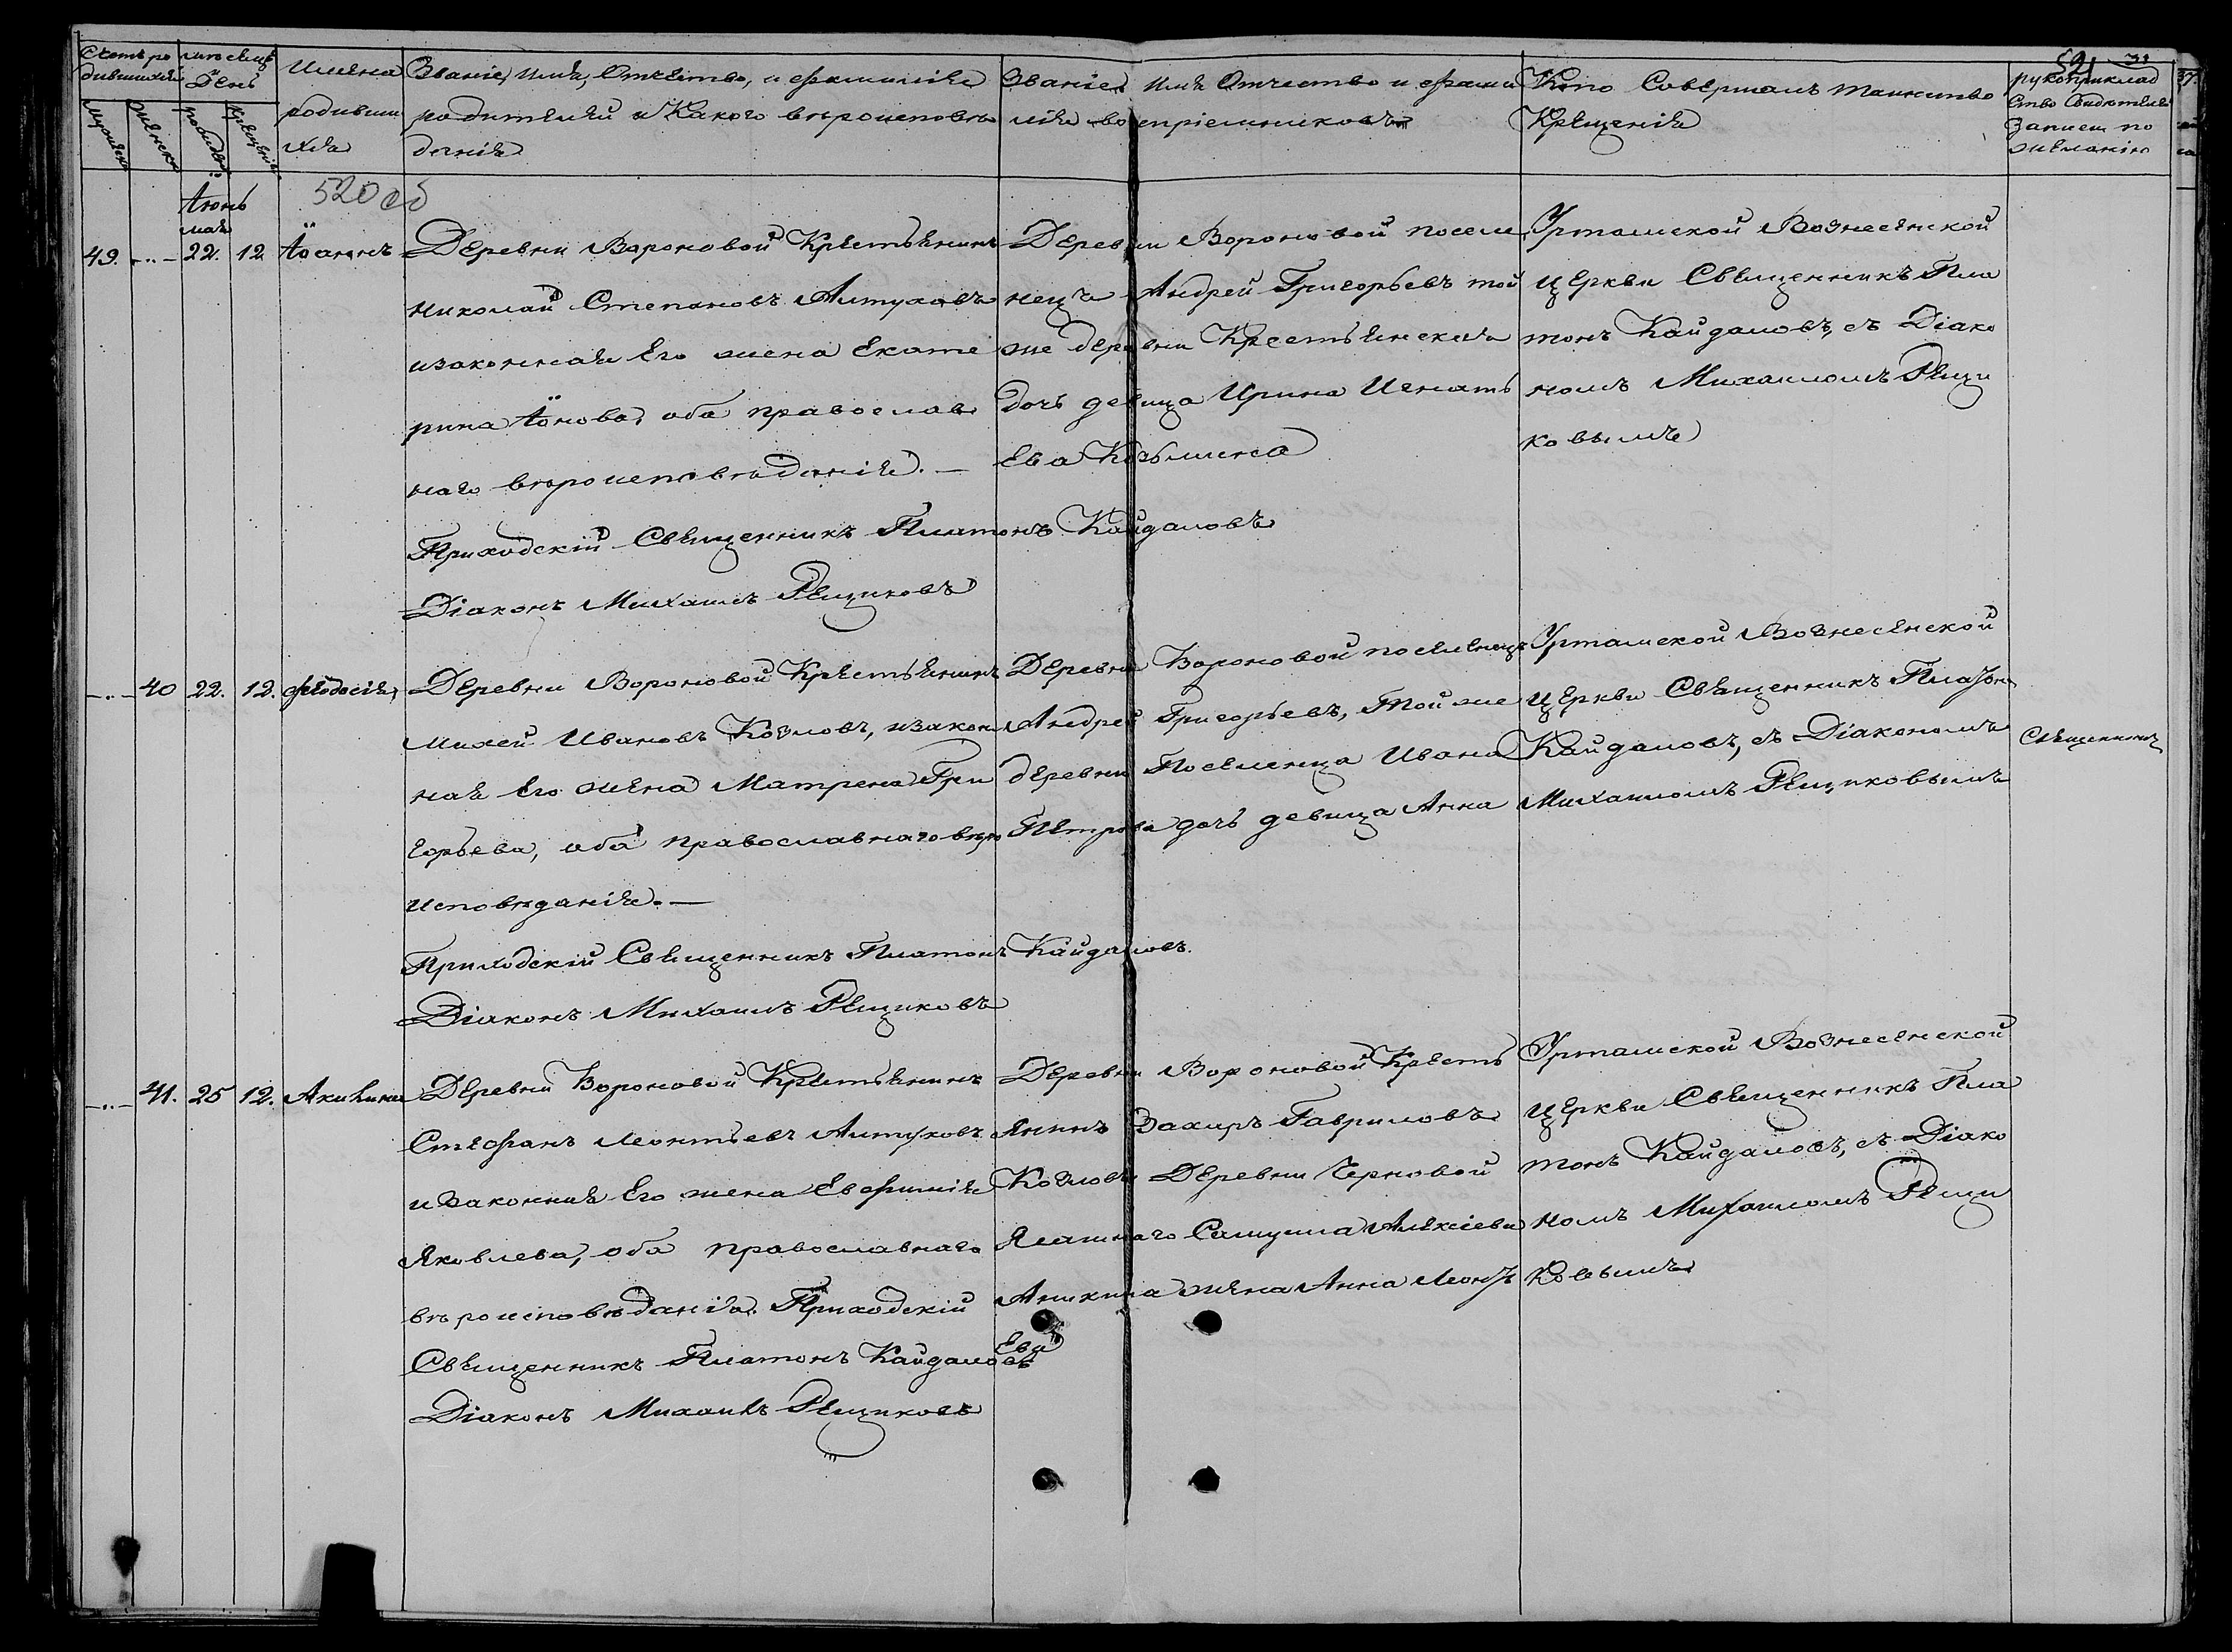 Счетъ ро
дившихся
мѣсецъ
День
Имена
родивши
хся
Званіе, имя, Отчѣство, и фамилія
родителей и Какого вѣроисповѣ
данія
Званіе, имя Отчество и фами
лія воспріемниковъ
Кто Совершалъ таинство
Крещенія
рукоприклад
ство Свидетелей
записи по
желанію
мужеска
женска
рожденія
крещенія
52
520 об
Іюнь
мая
49.
22.
12
Іоаннъ
Деревни Вороновой Крестьянинъ
Николай Степановъ Алтуховъ
изаконная Его жена Екате
рина Іонова, оба православ
наго вѣроисповѣданія.—
Приходскій Священникъ Платонъ Кайдаловъ
Діаконъ Михаилъ Рещиковъ
Деревни Вороновой поселе
нецъ Андрей Григорьевъ той
же деревни Крестьянская
дочь девица Ирина Игнать
Ева Козьмина
Уртамской Вознесенской
Церкви Священникъ Пла
тонъ Кайдаловъ, съ Діако
номъ Михаиломъ Рещи
ковымъ
40
22.
12.
Феодосія,
Деревни Вороновой Крестьянинъ
Михей Ивановъ Козловъ, изакон
ная Его жена Матрена Гри
горьева, оба православнаго вѣро
исповѣданія.—
Приходскій Священникъ Платонъ Кайдаловъ.
Діаконъ Михаилъ Рещиковъ
Деревни Вороновой поселенецъ
Андрей Григорьевъ, Той же
деревни Поселенца Ивана
Петрова дочь девица Анна
Уртамской Вознесенской
Церкви Священникъ Платонъ
Кайдаловъ, съ Діакономъ
Михаиломъ Рещиковымъ
Священникъ
41.
25
12.
Акилина
Деревни Вороновой Крестьянинъ
Стефанъ Леонтьевъ Алтуховъ
изаконная Его жена Евфимія
Яковлева, оба православнаго
вѣроисповѣданія. Приходскій
Священникъ Платонъ Кайдаловъ
Діаконъ Михаилъ Рещиковъ
Деревни Вороновой Кресть
янинъ Захаръ Гавриловъ
Козловъ Деревни Черновой
Ясашнаго Самуила Алексіева
Аникина жена Анна Леонть
Ева
Уртамской Вознесенской
Церкви Священникъ Пла
тонъ Кайдаловъ, съ Діако
номъ Михаиломъ Рещи
ковымъ